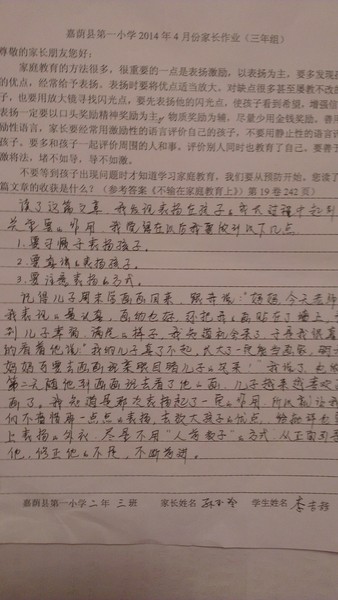 嘉荫县第一小学 2014 年 4 月份家长作业（三年组）
尊敬的家长朋友您好：
家庭教育的方法很多，很重要的一点是表扬激励，以表扬为主，要多发现孩
的优点，经常给予表扬，表扬时要将优点适当放大，对缺点很多甚至屡教不改的
子，也要用放大镜寻找闪光点，要先表扬他的闪光点，使孩子看到希望，增强信
表扬一定要以口头奖励精神奖励为主，物质奖励为辅，尽量少用金钱奖励，善用
励性语言，家长要经常用激励性的语言评价自己的孩子，不要用静止性的语言评
孩子，要多和孩子一起评价周围的人和事，评价别人同时也教育了自己，要善于
激将法，堵不如导，导不如激。
不要等到孩子出现问题时才知道学习家庭教育，我们要从预防开始。您读了
篇文章的收获是什么？（参考答案《不输在家庭教育上》第 19 卷 242 页）
读了这篇文章，我发现表扬在孩子的成长过程中起到
关重要的作用，我觉得在以后我要做到以下几点
1.要守候于表扬孩子。
2.要真诚的表扬孩子。
3.要注意表扬的方式
记得儿子周末后画画回来，跟我说："妈妈，今天老师
我表说的最认真，画的也好，还把我的画贴在了墙上，
到儿子幸福、满足的样子，我知道机会来了，于是我很真
的看着他说："我的儿子真了不起，长大了一定能当画家，
妈妈看要去画画班亲眼目睹儿子的风采！"我说了，也做
第二天随他到画画班去看了他的画，儿子越来越喜欢
画了，我知道是那次表扬起了一定的作用，所以
们不吝惜每一点点的表扬，去放大孩子的优点，
上表扬的外衣，尽量不用"人前教子"的方式，从正面引导
他，修正他的不足，不断前进。
嘉荫县第一小学二年 三班 家长姓名 学生姓名